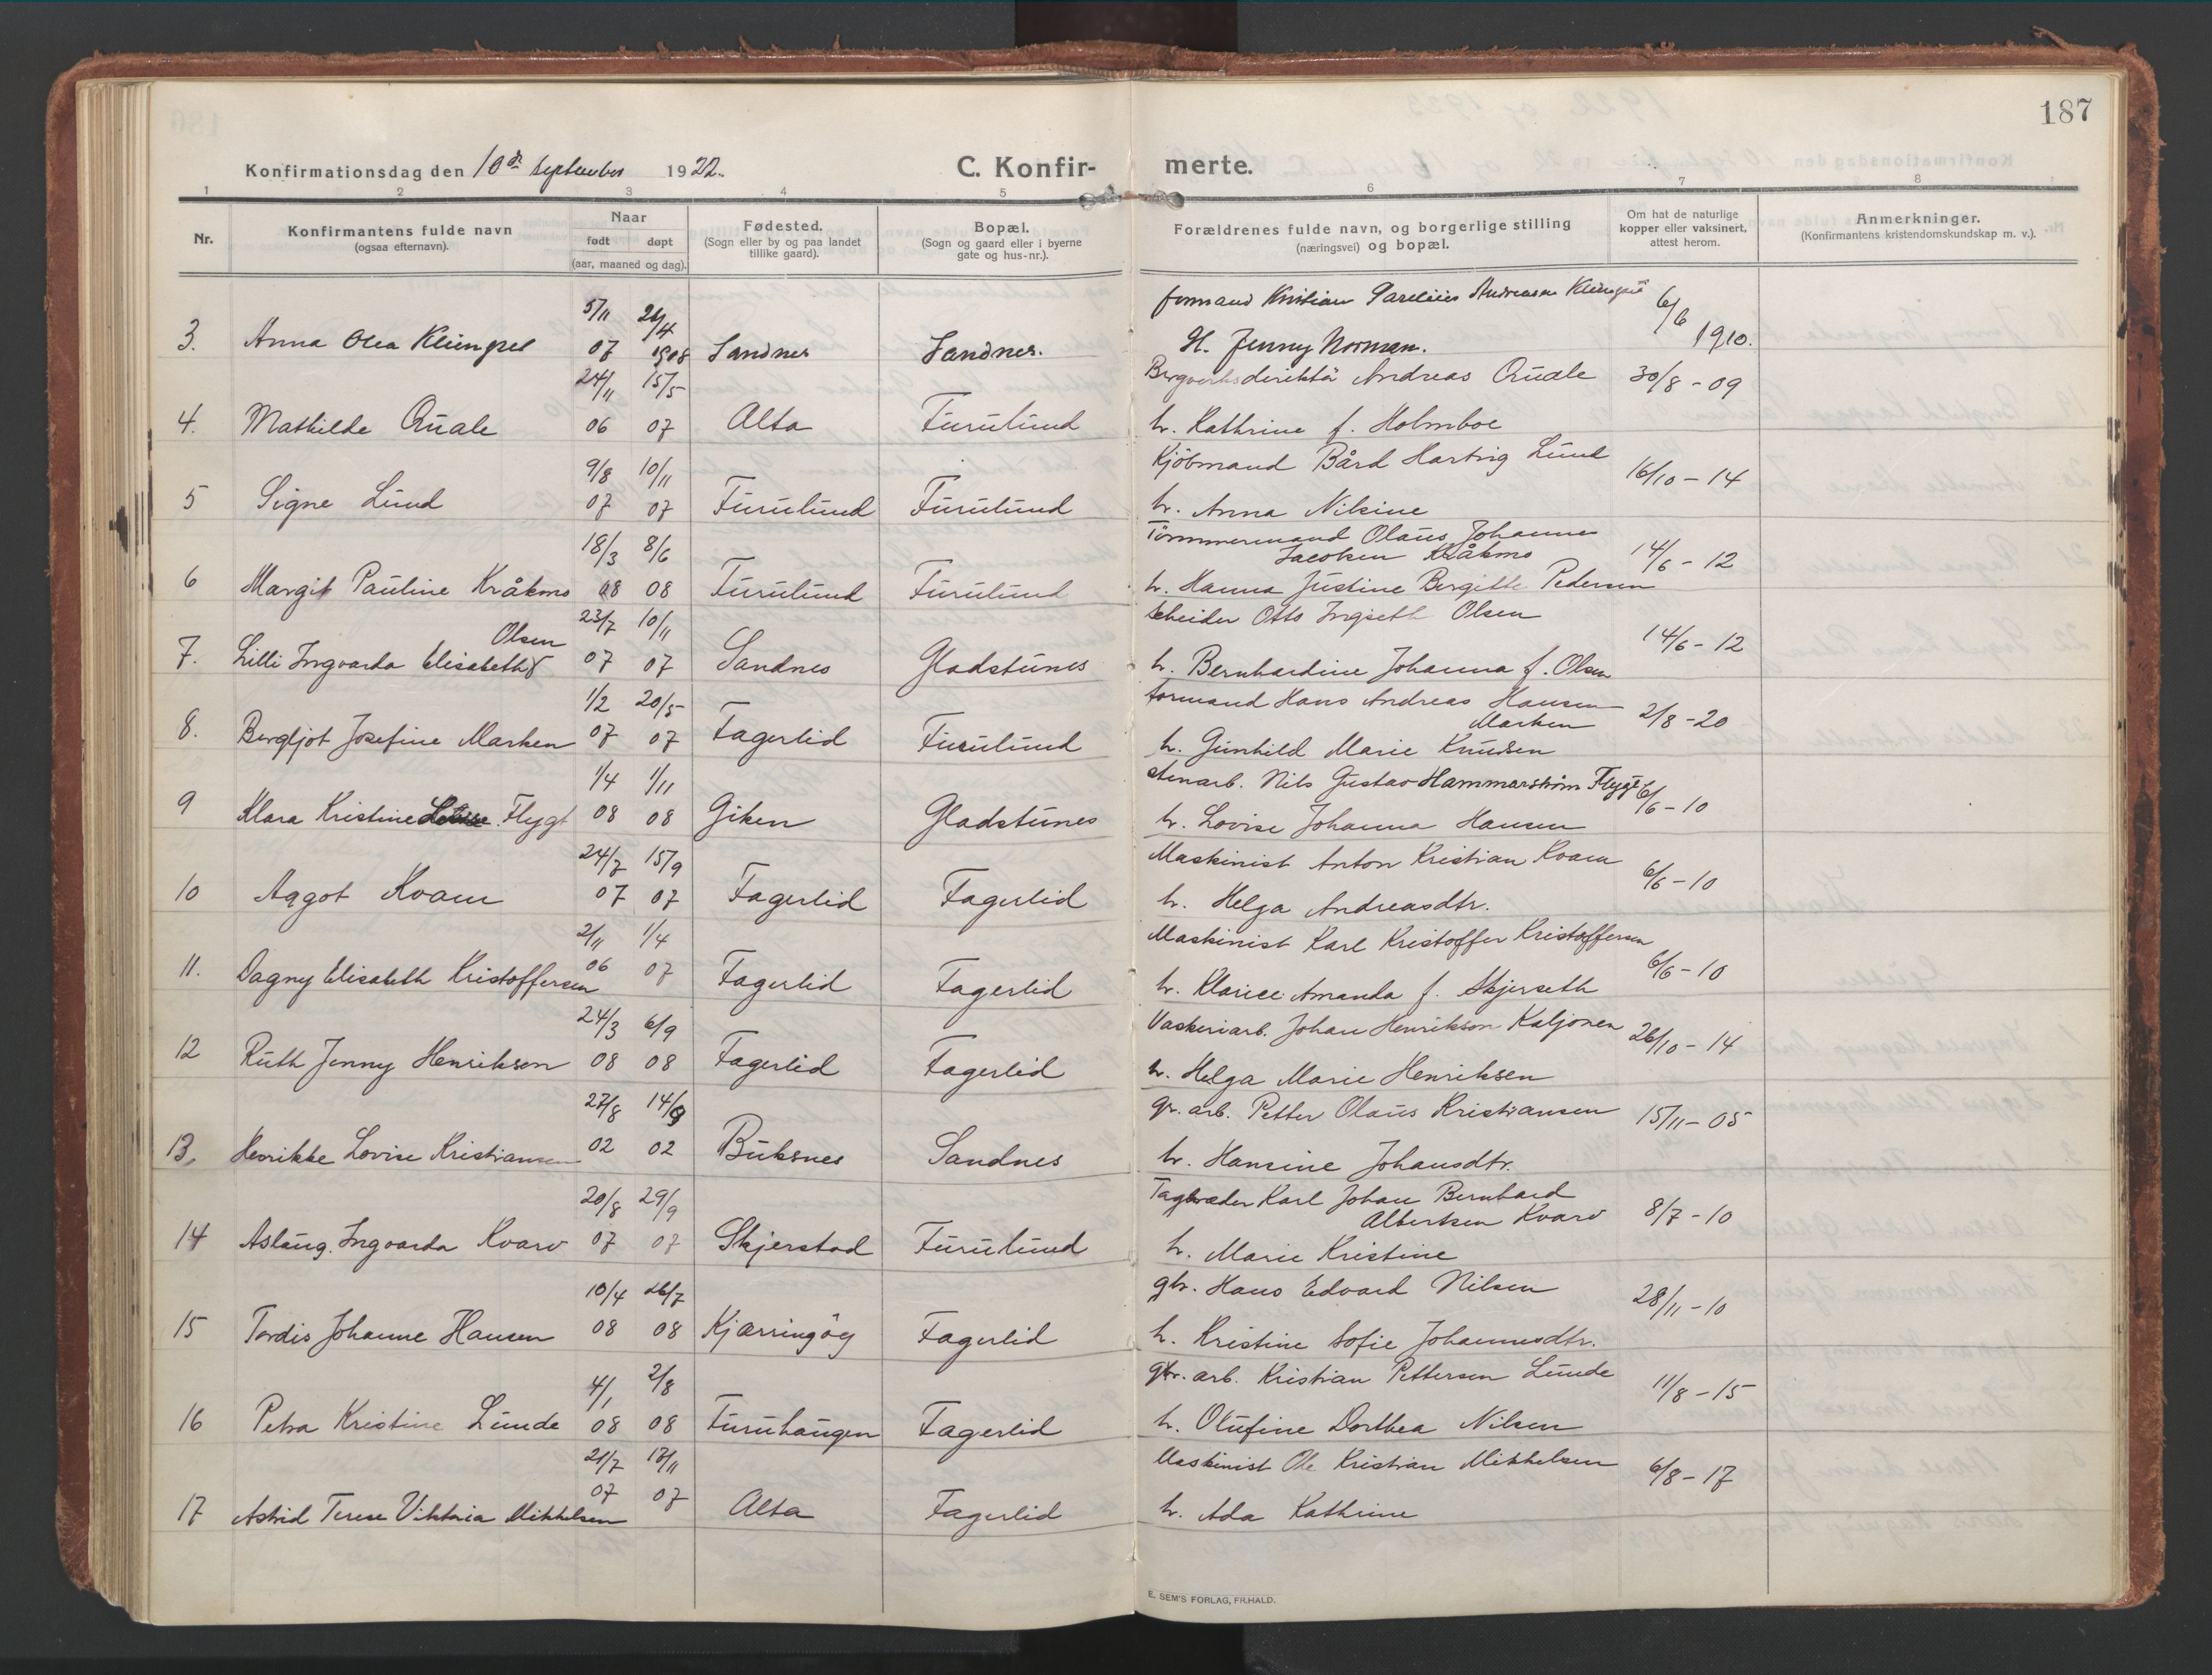 187
Konfirmationsdag den 10de september 1922. C. Konfir- merte.
1 2 3 4 5 6 7 8
Nr.
Konfirmantens fulde navn
(ogsaa efternavn).
Naar
født døpt
(aar, maaned og dag).
Fødested.
(Sogn eller by og paa landet
tillike gaard).
Bopæl.
(Sogn og gaard eller i byerne
gate og hus-nr.).
Forældrenes fulde navn, og borgerlige stilling
(næringsvei) og bopæl.
Om hat de naturlige
kopper eller vaksinert,
attest herom.
Anmerkninger.
(Konfirmantens kristendomskundskap m. v.).
5/11 26/4 formand Kristian Andreasen 6/6
3. Anna Olea Klüngsel 07 1908 Sandnes Sandnes. H. Jenny Norman. 1910.
24/11 15/5 Bergverksdirektör Andreas Quale 30/8 - 09
4. Mathilde Quale 06 07 Alta Furulund h. Kathrine f. Holmboe
9/8 10/11 Kjöbmand Bård Hartvig Lund 16/10 - 14
5 Signe Lund 07 07 Furulund Furulund h. Anna Nilsine
18/3 8/6 Tömmermand Olaus Johannes
Jacobsen Kråkmo 14/6 - 12
6 Margit Pauline Kråkmo 08 08 Furulund Furulund h. Hanna Justine Bergitte Pedersen
23/7 10/11 Scheider Otto Ingseth Olsen
Olsen 14/6 - 12
7. Lilli Ingvarda Elisabeth 07 07 Sandnes Gladstunes h. Bernhardine Johanna f. Olsen
1/2 20/5 formand Hans Andreas Hansen
Marken 2/8 - 20
8. Bergljot Josefine Marken 07 07 Fagerlid Furulund h. Gunhild Marie Knudsen
1/4 1/11 stenarb. Nils Gustav Hammarstrøm Flygt 6/6 - 10
9 Klara Kristine Flygt 08 08 Giken Gladstunes h. Lovise Johanna Hansen
24/7 15/9 Maskinist Anton Kristian Kvam 6/6 - 10
10 Aagot Kvam 07 07 Fagerlid Fagerlid h. Helga Andreasdtr.
2/11 1/4 Maskinist Karl Kristoffer Kristoffersen 6/6 - 10
11. Dagny Elisabeth Kristoffersen 06 07 Fagerlid Fagerlid h. Klarice Amanda f. Skjerseth
24/3 6/9 Vaskeriarb. Johan Henrikson Kaljonen 26/10 - 14
12 Ruth Jenny Henriksen 08 08 Fagerlid Fagerlid h. Helga Marie Henriksen
27/8 14/9 gr. arb. Petter Olaus Kristiansen 15/11 - 05
13. Henrikke Lovise Kristiansen 02 02 Buksnes Sandnes h. Hansine Johansdtr.
20/8 29/9 Karl Johan Bernhard
Albertsen Kvarv 8/7 - 10
14 Aslaug Ingvarda Kvarv 07 07 Skjerstad Furulund h. Marie Kristine
10/4 26/7 gbr. Hans Edvard Nilsen 28/11 - 10
15 Tordis Johanne Hansen 08 08 Kjærringöy Fagerlid h. Kristine Sofie Johannesdtr.
4/1 2/8 gbr. arb. Kristian Pettersen Lunde 11/8 - 15
16 Petra Kristine Lunde 08 08 Furuhaugen Fagerlid h. Olufine Dorthea Nilsen
21/7 17/11 Maskinist Ole Kristian Mikkelsen 6/8 - 17
17 Astrid Terese Viktoria Mikkelsen 07 07 Alta Fagerlid h. Ada Kathrine
E. SEM'S FORLAG, FR.HALD.